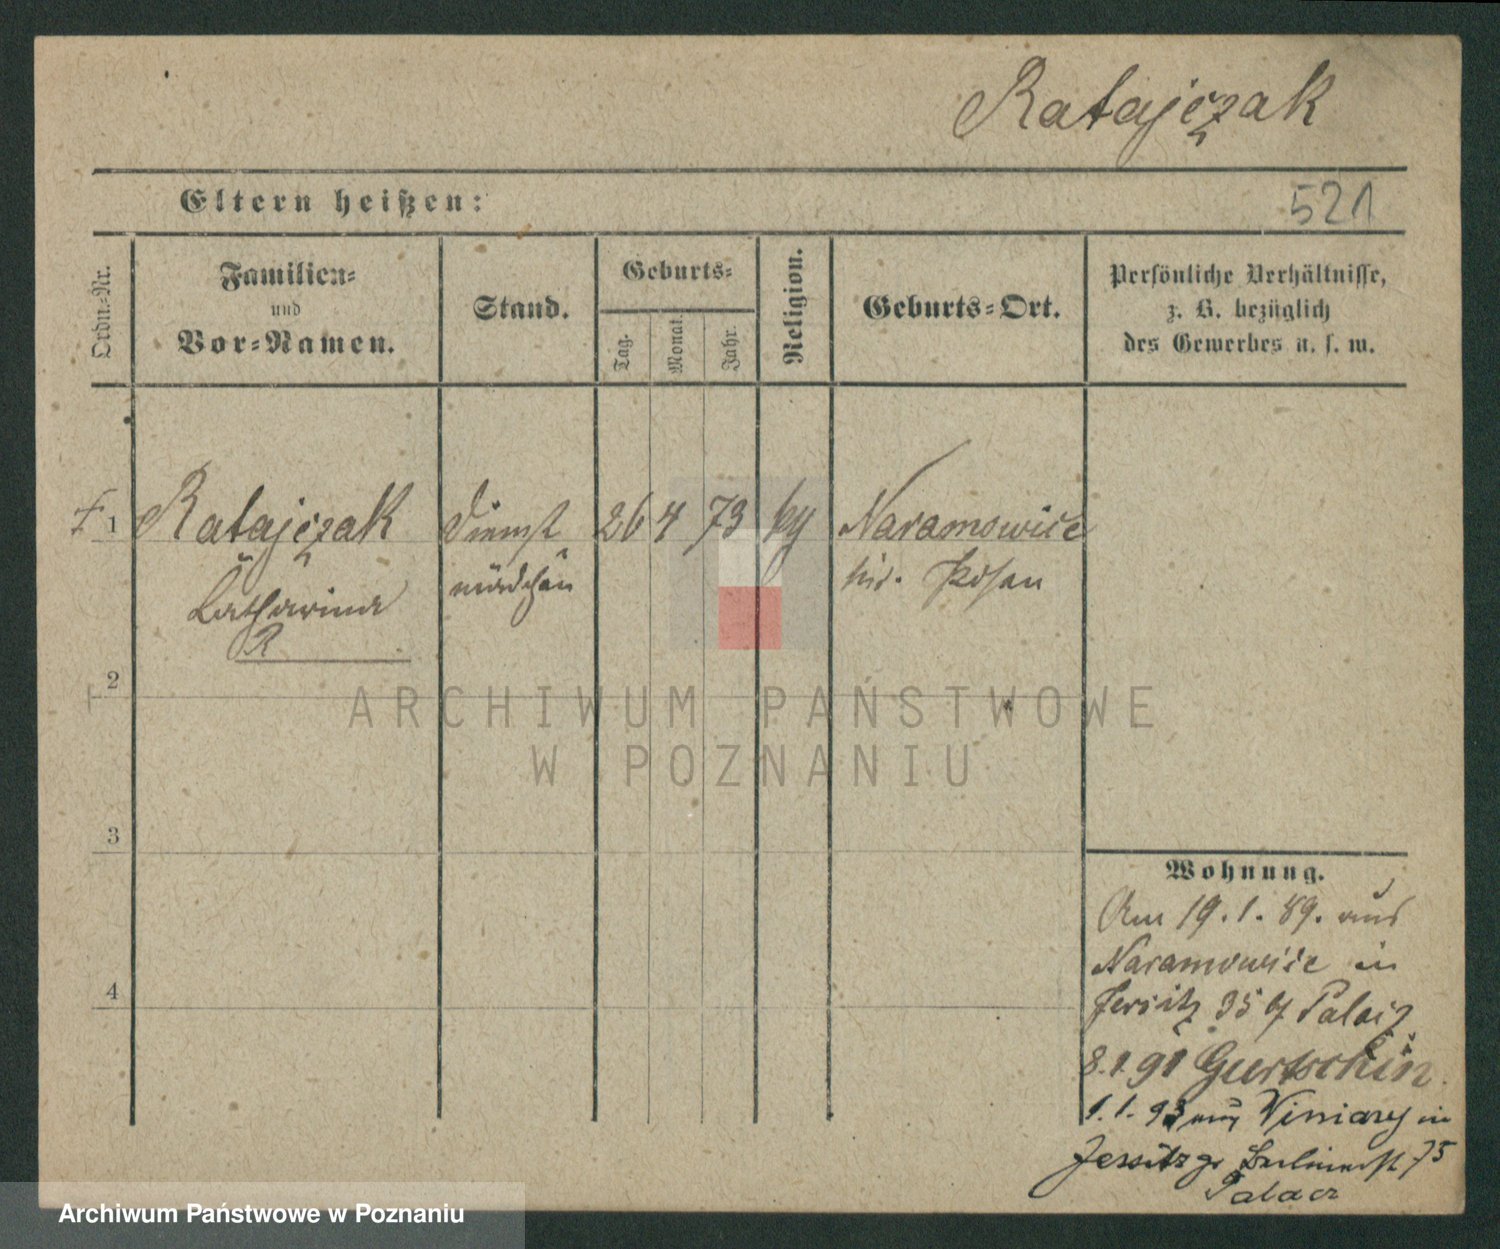 Ratajczak
Eltern heißen:
521
Ordn.-Nr.
Familien-
und
Vor-Namen.
Stand.
Geburts-
Tag.
Monat.
Jahr.
Religion.
Geburts-Ort.
Persönliche Verhältnisse,
z. B. bezüglich
des Gewerbes u. s. w.
1 Ratajczak Dienst 26 4 73 Naramowice
Catharina mädchen Posen
R
2
ARCHIWUM PAŃSTWOWE
W POZNANIU
3
Wohnung.
Am 19. 1. 89. aus
Naramowice in
Jersitz 35 Palacz
4
8.1.91 Gurtschin
1. 1. 93 aus Winiary in
Jersitz gr Berlinerst 75
Palacz
Archiwum Państwowe w Poznaniu